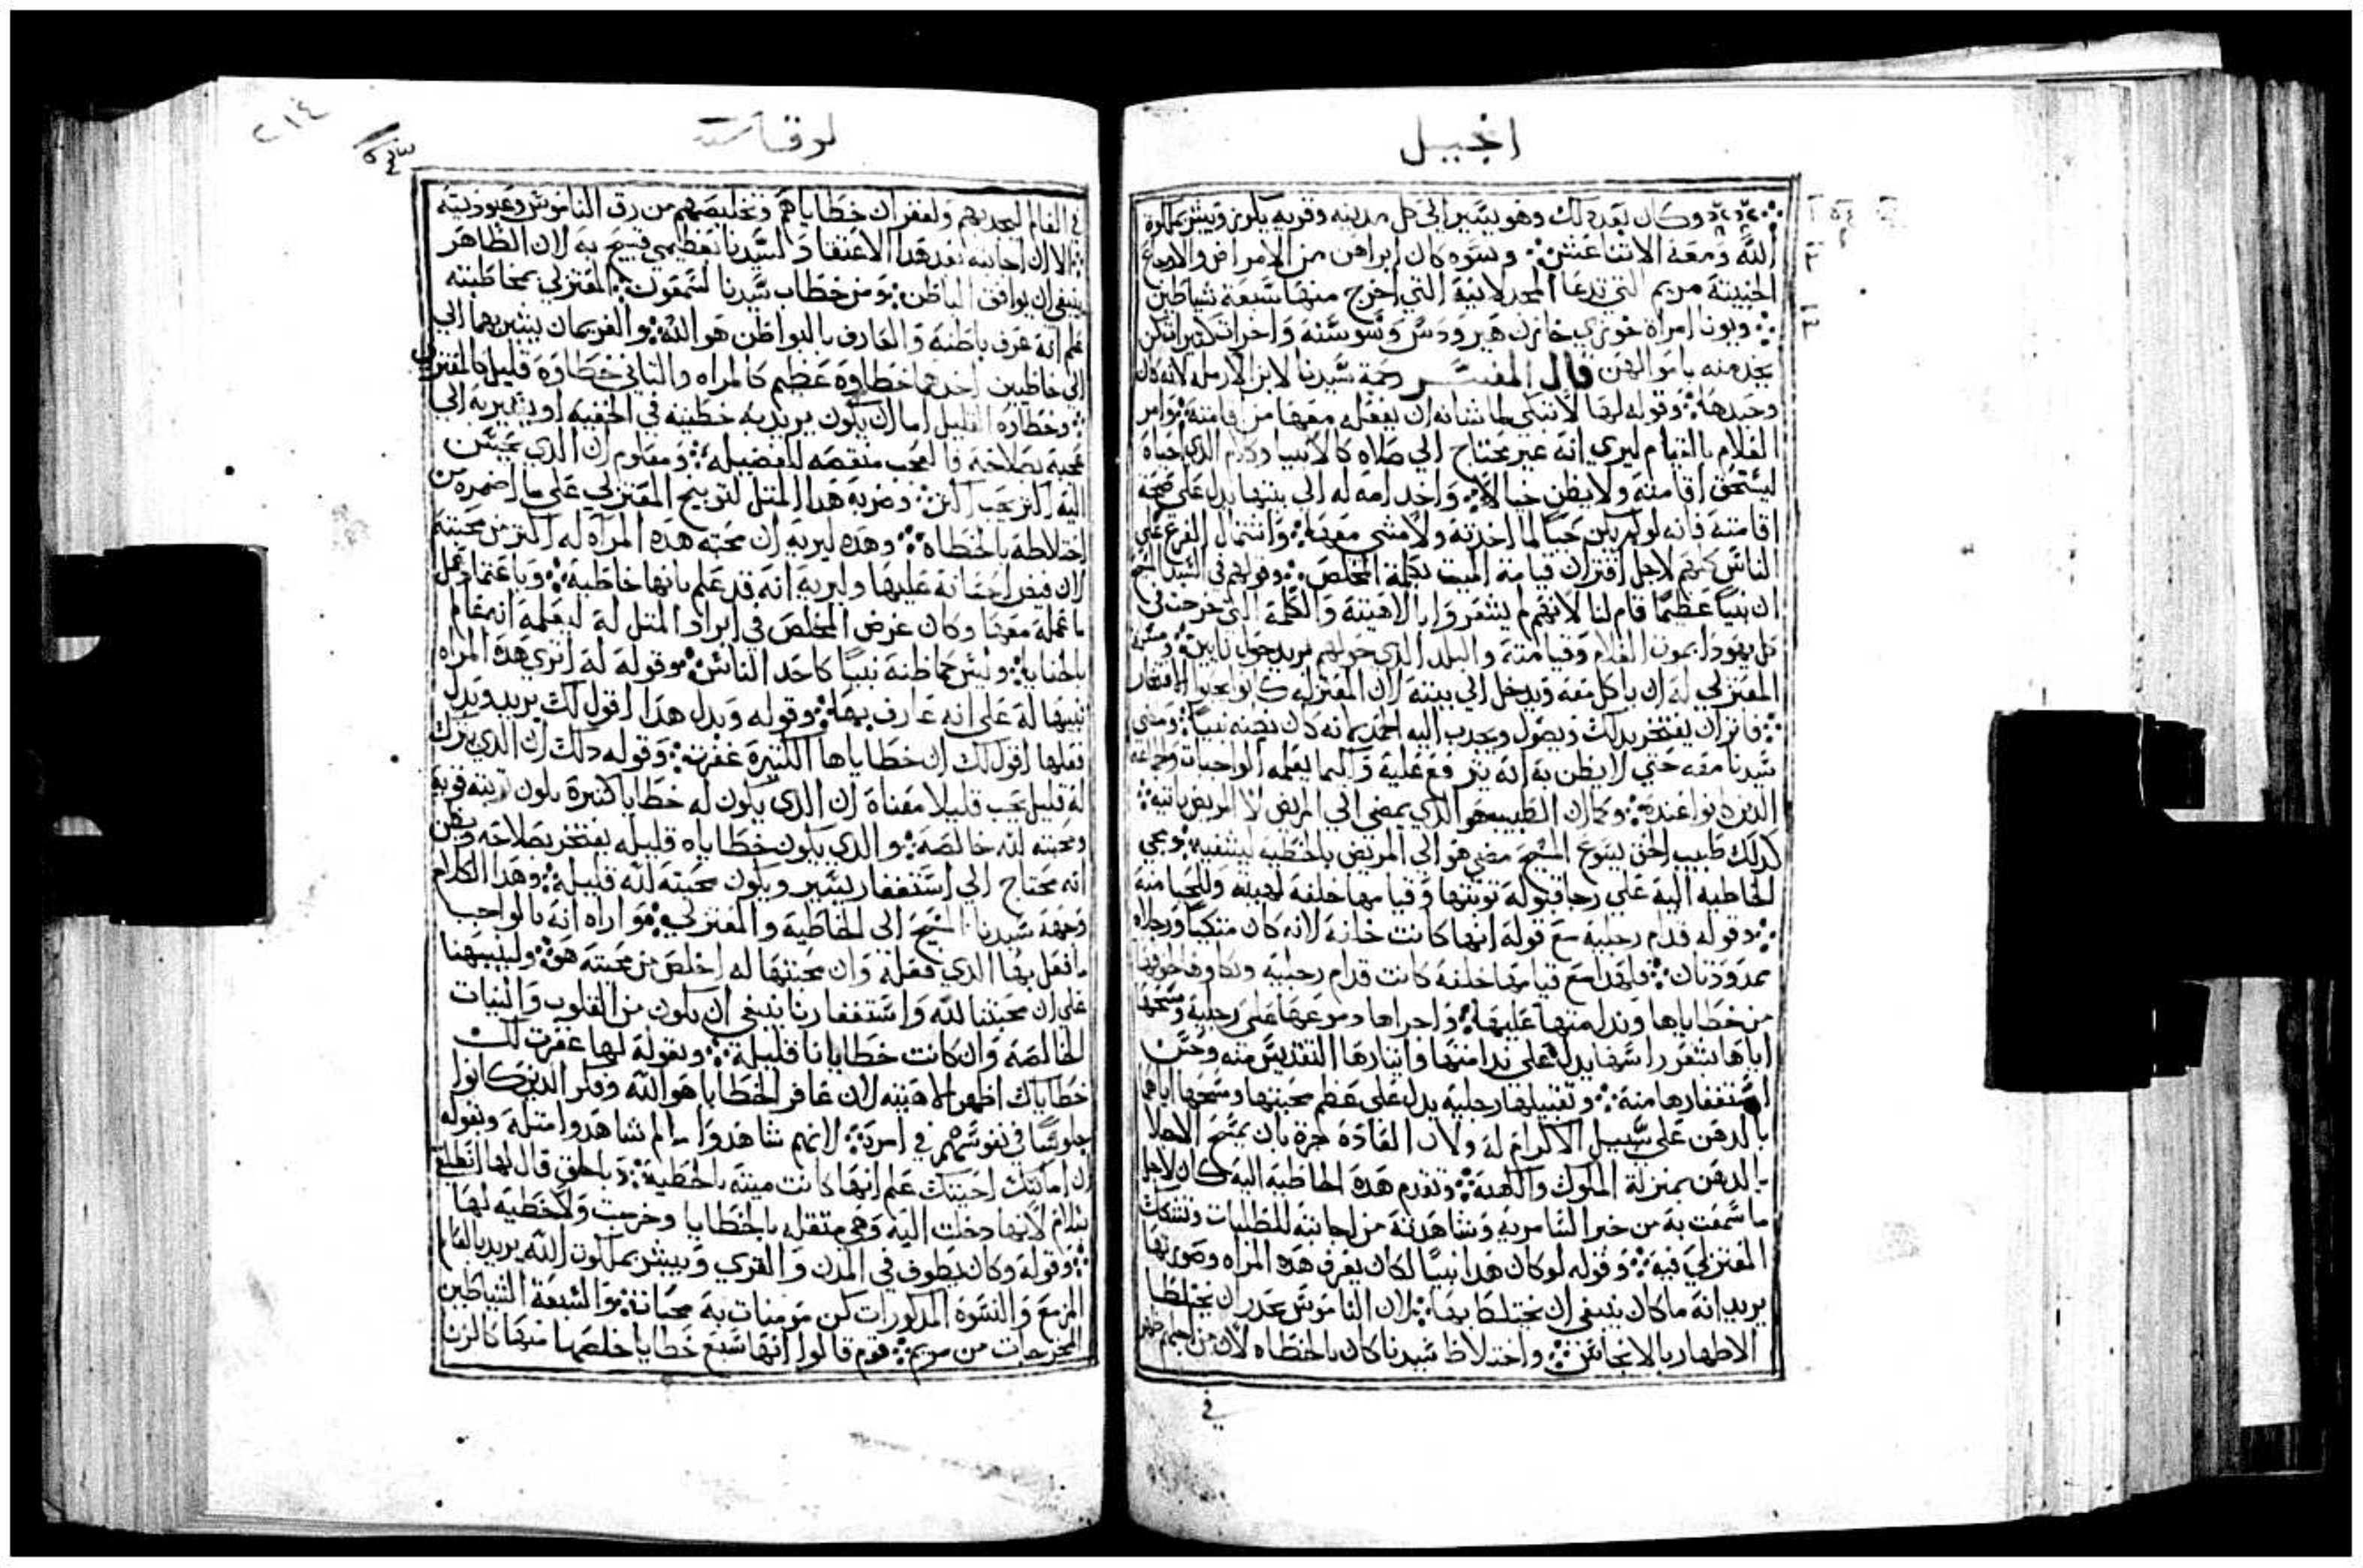 انجيل
وكان بعد ذلك وهو يسير الي كل مدينه وقريه يكرز ويبشر بملكوة
الله ومعه الاثنا عشر ونسوه كان ابراهن من الامراض والارواح
الخبيثة مريم التي تدعا المجدلانية التي اخرج منها سبعة شياطين
ويونا امراة خوزي خازن هيرودس وسوسنة واخرات كثيرات كن
يخدمنه باموالهن قال المفسر رحمة سيدنا لابن الارمله لانه كان
وحيدها وقوله لها لا تبكي لما شانه ان يفعله معها من اقامته وامر
الغلام بالقيام ليري انه غير محتاج الي صلاه كالانبيا وكلام الذي احياه
ليتحقق اقامته ولا يظن خيالا واخد امه له الي بيتها يدل على صحة
اقامته فانه لو لم يكن حيا لما اخدته ولا مشي معها واشتمال الفزع علي
الناس كلهم لاجل اقتران قيامة الميت بكلمة المخلص وقولهم في السيد المسيح
ان نبيا عظيما قام لنا لانهم لم يشعروا بالاهيته والكلمة التي خرجت في
كل يهودا بموت الغلام وقيامته والبلد الذي حولهم يريد حول نايين
المعتزلي له ان ياكل معه ويدخل الي بيته لان المعتزله كانوا يحبوا الافتخار
فاثر ان يفتخر بذلك ويصول ويجدب اليه الحمد بانه كان يظنه نبيا ومضي
سيدنا معه حتي لا يظن به انه يترفع عليه وكيما يعلمه الواجبات والجماعه
الذين كانوا عنده وكما ان الطبيب هو الذي يمضي الي المريض لا المريض ياتيه
كذلك طبيب الحق يسوع المسيح مضي هو الي المريض بالخطيه ليشفيه ومجي
الخاطيه اليه علي رجا قبوله توبتها وقيامها خلفه لهيبته وللحيا منه
وقوله قدام رجليه مع قوله انها كانت خلفه لانه كان متكيا ورجلاه
ممدودتان فلهدا مع قيامها خلفه كانت قدام رجليه وبكاوها خوفها
من خطاياها وندامتها عليها واجراها دموعها علي رجليه ومسحها
اياها بشعر راسها يدل علي ندامتها وايتارها التقديس منه وحسن
استغفارها منه وتقبيلها رجليه يدل علي عظم محبتها ومسحها اياهما
بالدهن علي سبيل الاكرام له ولان العادة جرة بان يمسح الاجلا
بالدهن بمنزلة الملوك والكهنة وتقدم هده الخاطيه اليه كان لاجل
ما سمعت به من خبر السامريه وشاهدته من اجابته للطلبات وتشكك
المعتزلي فيه وقوله لو كان هدا نبيا لكان يعرف هده المراه وصورتها
يريد انه ما كان ينبغي ان يختلط بها لان الناموس يحدر ان يختلط
الاطهار بالانجاس واختلاط سيدنا كان بالخطاه لان من اجلهم
في
لوقا
٢١٤
في العالم ليجدبهم ولغفران خطاياهم وتخليصهم من رق الناموس وعبوديته
الا ان اجابته بعد هدا الاعتقاد لسيدنا بعظيمي قبيح به لان الظاهر
ينبغي ان يوافق الباطن ومن خطاب سيدنا لشمعون المعتزلي بمخاطبته
علم انه عرف باطنه والعارف بالبواطن هو الله والغريمان يشير بهما الي
الي خاطيين احدهما خطاوه عظيم كالمراه والثاني خطاوه قليل كالمعتزلي
وخطاوه القليل اما ان يكون يريد به خطيته في الخفيه او يشير به الي
عجبه بصلاحه فالعجب منقصه للفضيله ومعلوم ان الذي يحسن
اليه اكتر يحب اكتر وضربه هدا المتل لتوبيخ المعتزلي علي ما اضمره من
اختلاطه بالخطاة وهده ليريه ان محبه هده المراه له اكتر من محبته
لان فيض احسانه عليها وليريه انه قد علم بانها خاطية وباعتماد عمل
ما عمله معها وكان غرض المخلص في ايراد المتل له ليعلمه انه عالم
بالخفايا وليس كما ظنه نبيا كاحد الناس وقوله له اتري هده المراه
نبيها له علي انه عارف بها وقوله وبدل هدا اقول لك يريد وبدل
فعلها اقول لك ان خطاياها الكتيرة غفرت وقوله دلك ان الدي يترك
له قليل يحب قليلا معناه ان الدي يكون له خطايا كتيرة يكون توبته قويه
ومحبته لله خالصه والدي يكون خطاياه قليله يفتخر بصلاحه ويظن
انه محتاج الي استغفار يسير ويكون محبته لله قليلة وهدا الكلام
وجهه سيدنا المسيح الي الخاطية والمعتزلي واراه انه بالواجب
ما فعل بها الدي فعله وان محبتها له اخلص من محبته هو ولينبهنا
علي ان محبتنا لله واستغفارنا ينبغي ان يكون من القلوب والنيات
الخالصة وان كانت خطايانا قليلة وبقوله لها غفرت لك
خطاياك اظهر الاهيته لان غافر الخطايا هو الله وفكر الدين كانوا
جلوسا في نفوسهم في امره لانهم شاهدوا ما لم يشاهدوا متله وبقوله
ان امانتك احيتك علم انها كانت ميته بالخطية وبالحق قال لها انطلقي
بسلام لانها دخلت اليه وهي متقله بالخطايا وخرجت ولا خطيه لها
وقوله وكان يطوف في المدن والقري ويبشر بملكوت الله يريد بالعالم
المزمع والنسوه المدكورات كن مومنات به محبات والسبعة الشياطين
المخرجات من مريم قوم قالوا انها سبع خطايا خلصها منها كالزنا